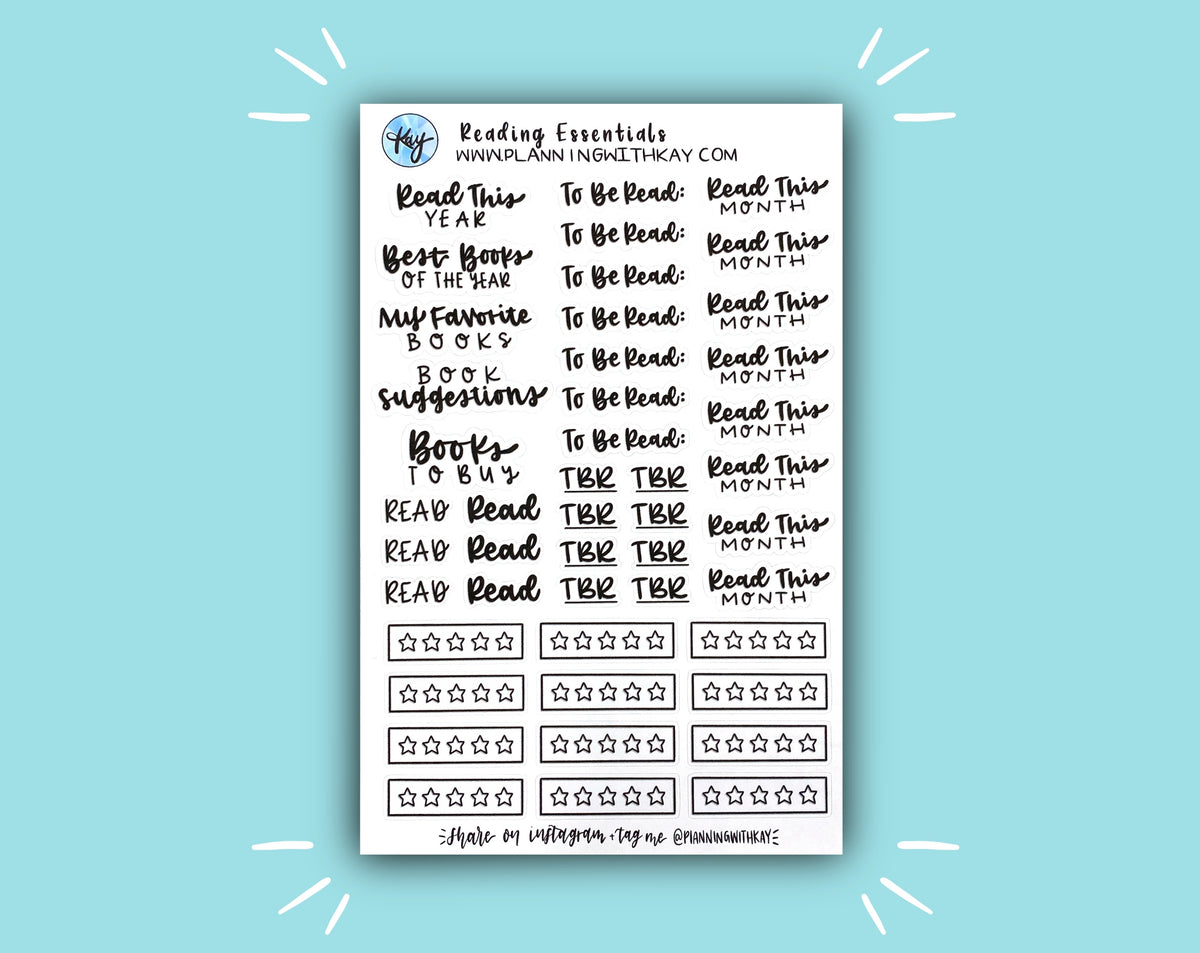 Kay
Reading Essentials
WWW.PLANNINGWITHKAY.COM
Read This
YEAR
Best Books
OF THE YEAR
My Favorite
BOOKS
BOOK
Suggestions
Books
TO BUY
READ Read
READ Read
READ Read
To Be Read:
To Be Read:
To Be Read:
To Be Read:
To Be Read:
To Be Read:
To Be Read:
TBR TBR
TBR TBR
TBR TBR
TBR TBR
Read This
MONTH
Read This
MONTH
Read This
MONTH
Read This
MONTH
Read This
MONTH
Read This
MONTH
Read This
MONTH
Read This
MONTH
Share on instagram + tag me @PLANNINGWITHKAY